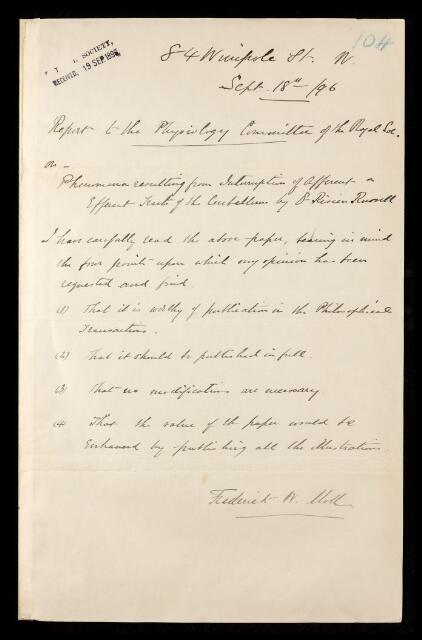 104
SOCIETY,
RECEIVED, 19 SEP 1896
84 Wimpole St. W.
Sept. 18th /96
Report to the Physiology Committee of the Royal Soc.
on
Phenomena resulting from Interruption of Afferent &
Efferent Tracts of the Cerebellum by Dr Risien Russell
I have carefully read the above paper, bearing in mind
the four points upon which my opinion has been
requested and find
(1) That it is worthy of publication in the Philosophical
Transactions.
(2) That it should be published in full.
(3) That no modifications are necessary.
(4) That the value of the paper would be
Enhanced by publishing all the illustrations.
Frederick W. Mott